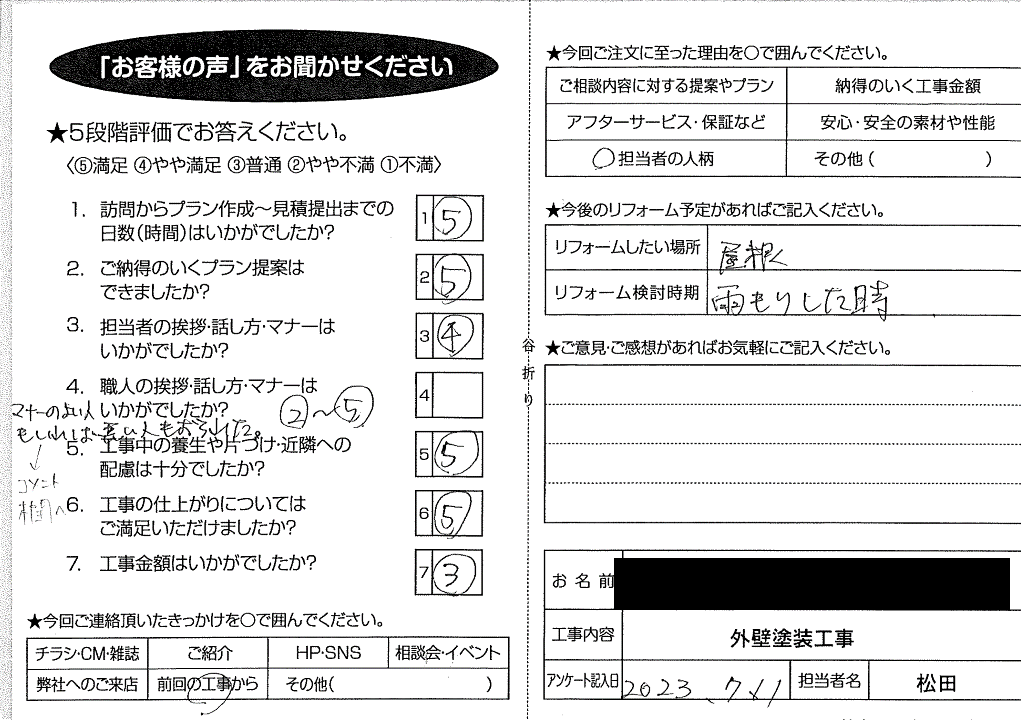 「お客様の声」をお聞かせください
★5段階評価でお答えください。
〈⑤満足 ④やや満足 ③普通 ②やや不満 ①不満〉
1. 訪問からプラン作成～見積提出までの
日数(時間)はいかがでしたか?
1 ⑤
2. ご納得のいくプラン提案は
できましたか?
2 ⑤
3. 担当者の挨拶・話し方・マナーは
いかがでしたか?
3 ④
4. 職人の挨拶・話し方・マナーは
いかがでしたか?
4
②～⑤
マナーのよい人
もいれば悪い人もおられた。
↓
コメント
欄へ
5. 工事中の養生や片づけ・近隣への
配慮は十分でしたか?
5 ⑤
6. 工事の仕上がりについては
ご満足いただけましたか?
6 ⑤
7. 工事金額はいかがでしたか?
7 ③
★今回ご連絡頂いたきっかけを○で囲んでください。
チラシ・CM・雑誌 ご紹介 HP・SNS 相談会・イベント
弊社へのご来店 前回の工事から その他( )
谷折り
★今回ご注文に至った理由を○で囲んでください。
ご相談内容に対する提案やプラン 納得のいく工事金額
アフターサービス・保証など 安心・安全の素材や性能
○担当者の人柄 その他( )
★今後のリフォーム予定があればご記入ください。
リフォームしたい場所 屋根
リフォーム検討時期 雨もりした時
★ご意見・ご感想があればお気軽にご記入ください。
お名前
工事内容 外壁塗装工事
アンケート記入日 2023.7/1 担当者名 松田